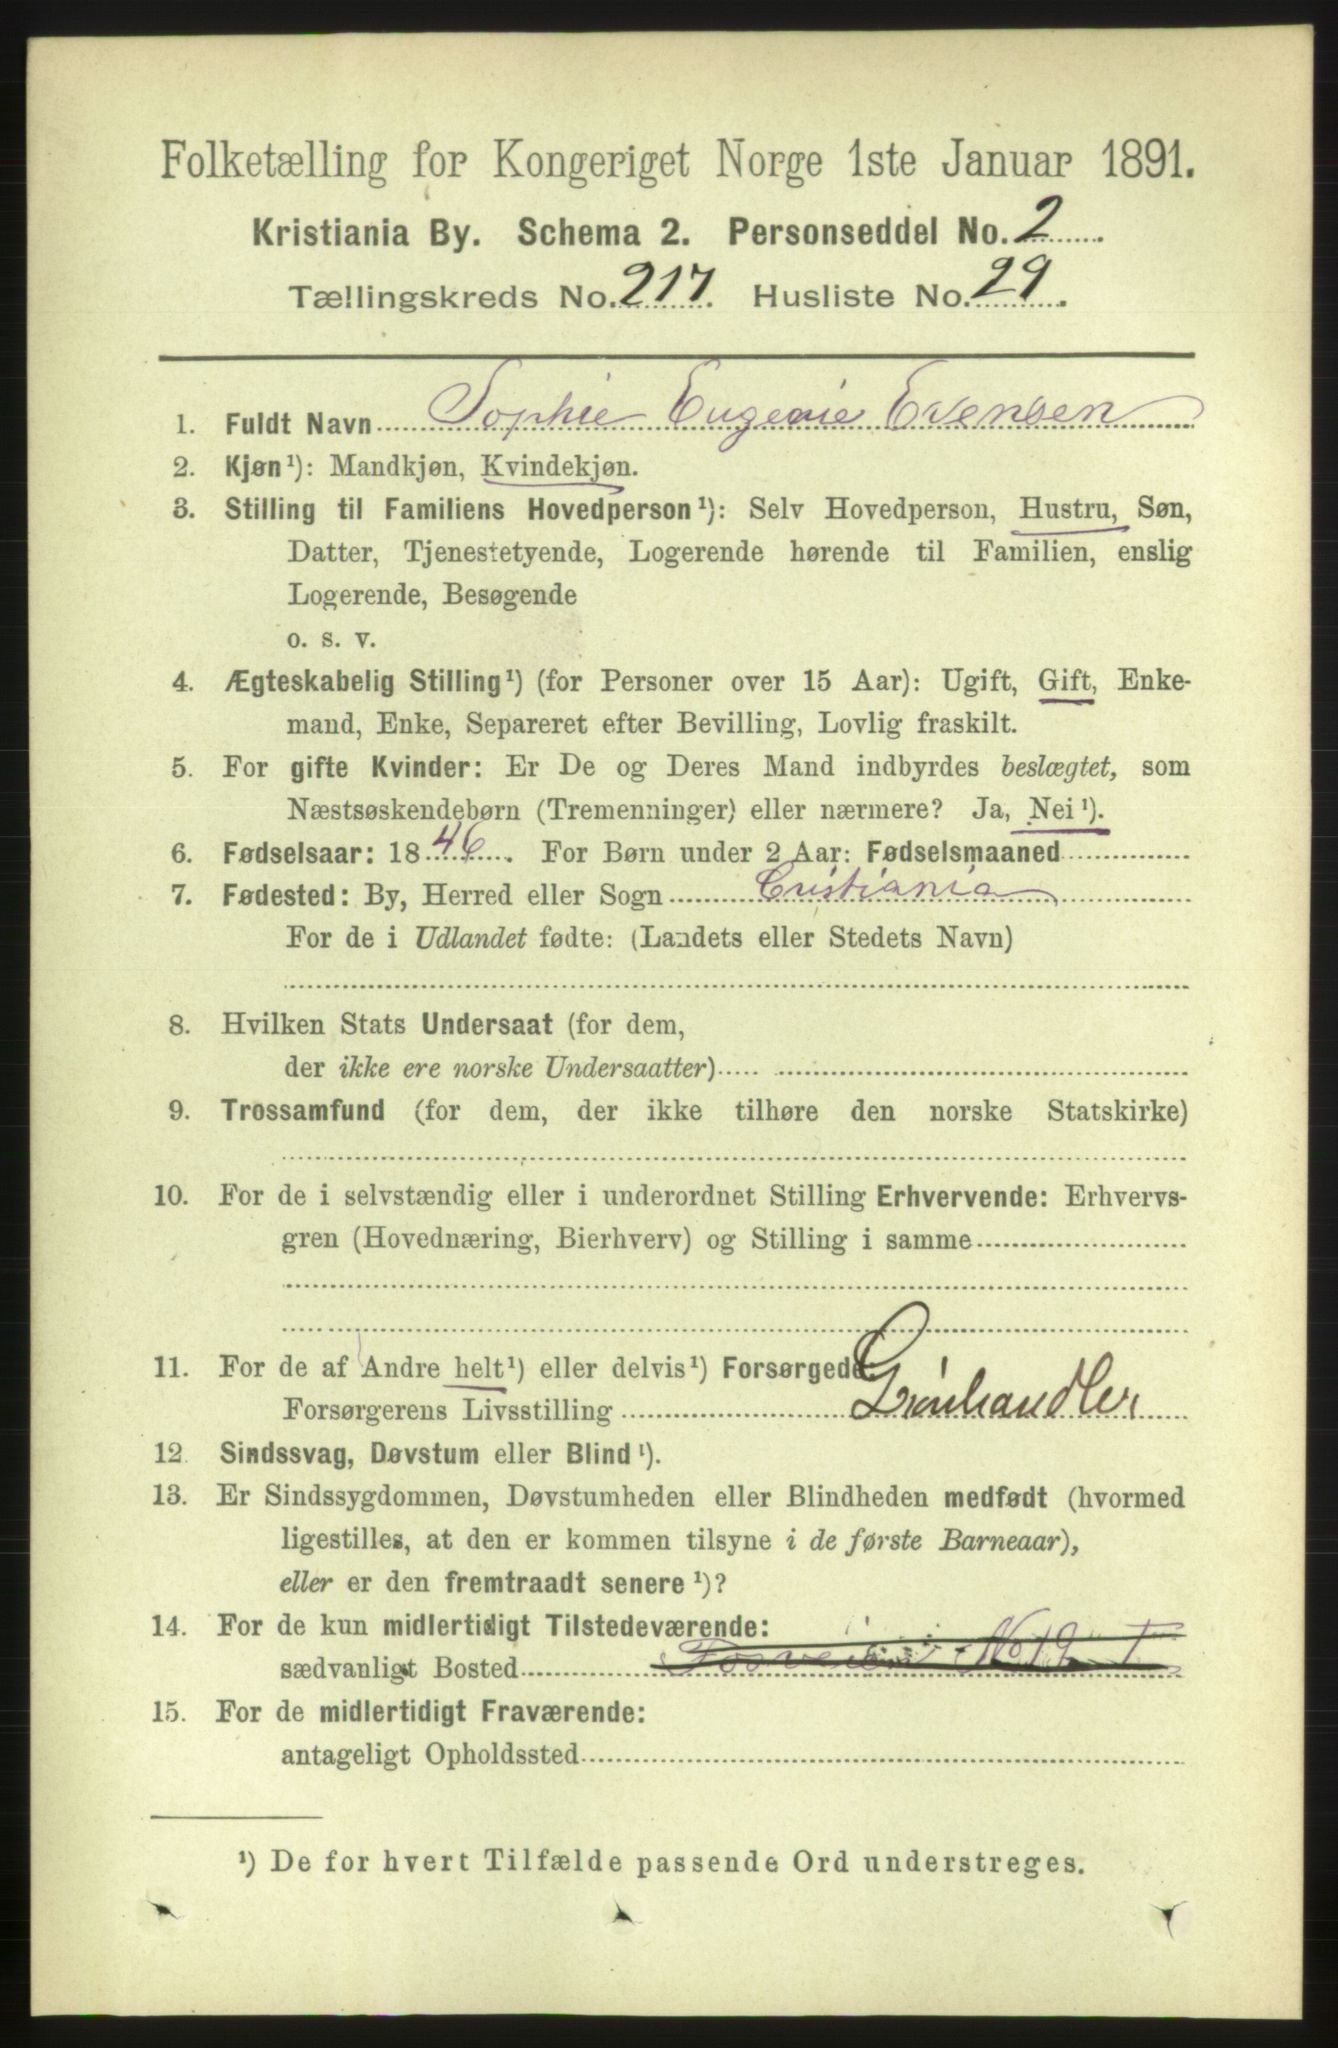 Folketælling for Kongeriget Norge 1ste Januar 1891.
Kristiania By. Schema 2. Personseddel No. 2
Tællingskreds No. 217. Husliste No. 29.
1. Fuldt Navn Sophie Eugenie Evensen
2. Kjøn¹): Mandkjøn, Kvindekjøn.
3. Stilling til Familiens Hovedperson¹): Selv Hovedperson, Hustru, Søn,
Datter, Tjenestetyende, Logerende hørende til Familien, enslig
Logerende, Besøgende
o. s. v.
4. Ægteskabelig Stilling¹) (for Personer over 15 Aar): Ugift, Gift, Enke-
mand, Enke, Separeret efter Bevilling, Lovlig fraskilt.
5. For gifte Kvinder: Er De og Deres Mand indbyrdes beslægtet, som
Næstsøskendebørn (Tremenninger) eller nærmere? Ja, Nei¹).
6. Fødselsaar: 1846. For Børn under 2 Aar: Fødselsmaaned
7. Fødested: By, Herred eller Sogn Cristiania
For de i Udlandet fødte: (Landets eller Stedets Navn)
8. Hvilken Stats Undersaat (for dem,
der ikke ere norske Undersaatter)
9. Trossamfund (for dem, der ikke tilhøre den norske Statskirke)
10. For de i selvstændig eller i underordnet Stilling Erhvervende: Erhvervs-
gren (Hovednæring, Bierhverv) og Stilling i samme
11. For de af Andre helt¹) eller delvis¹) Forsørgede:
Forsørgerens Livsstilling Grønhandler
12. Sindssvag, Døvstum eller Blind¹).
13. Er Sindssygdommen, Døvstumheden eller Blindheden medfødt (hvormed
ligestilles, at den er kommen tilsyne i de første Barneaar),
eller er den fremtraadt senere¹)?
14. For de kun midlertidigt Tilstedeværende:
sædvanligt Bosted
15. For de midlertidigt Fraværende:
antageligt Opholdssted
¹) De for hvert Tilfælde passende Ord understreges.